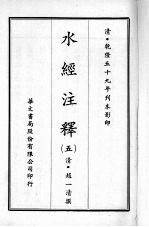 清·乾隆五十九年刊本影印
水經注釋
(五)
清·趙一清撰
華文書局股份有限公司印行